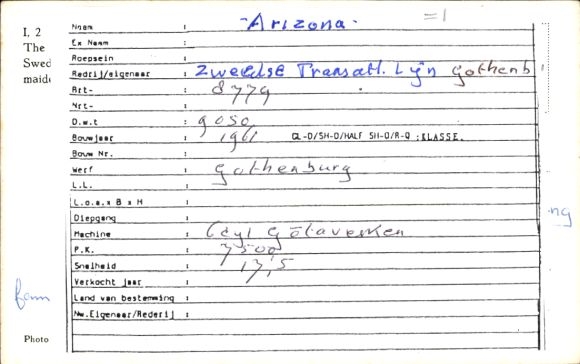 I, 2
The
Swed
maid
Naam : -Arizona- =1
Ex Naam :
Roepsein :
Rederij/eigenaar : Zweedse Transatl. Lijn Gothenb
Brt- : 8779
Nrt- :
D.w.t : 9050
Bouwjaar : 1961 CL-D/SH-D/HALF SH-D/R-Q :KLASSE.
Bouw Nr. :
Werf : Gothenburg
L.L. :
L.o.a.x B x H :
Diepgang :
Machine : 6cyl Götaverken
P.K. : 7500
Snelheid : 17,5
Verkocht jaar :
Land van bestemming :
Nw.Eigenaar/Rederij :
ng
Photo